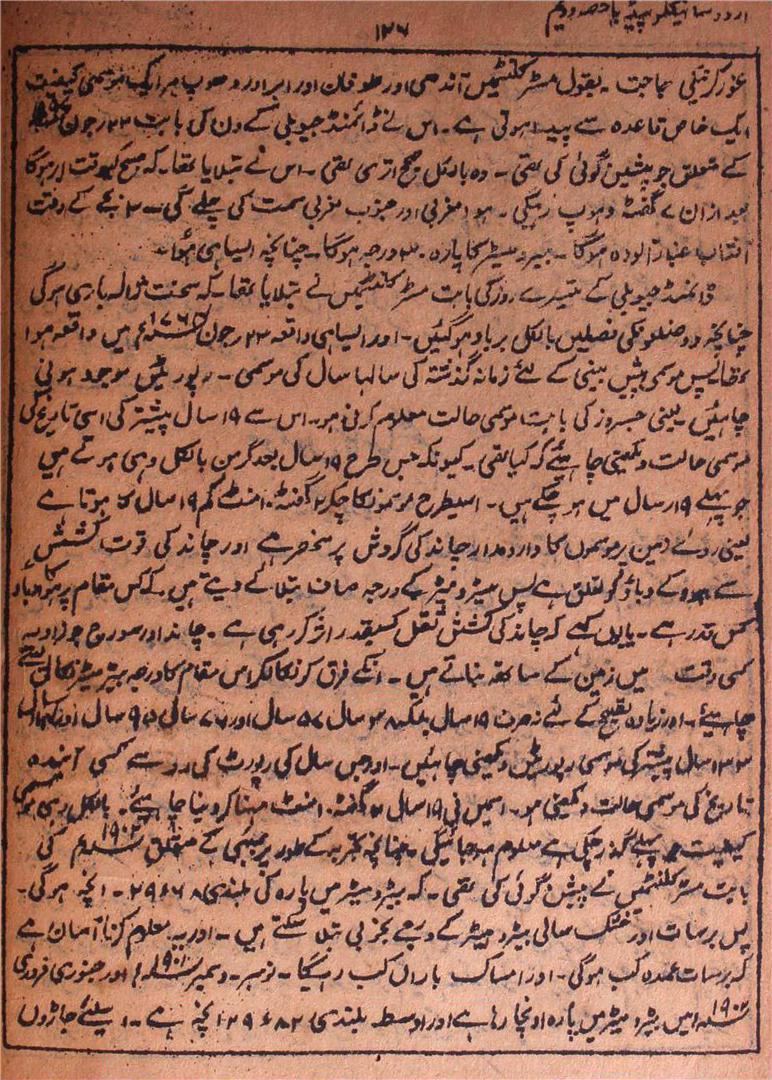 اردو سائیکلوپیڈیا حصہ دویم
۱۲۶
غور کرنیکی حاجت - بقول مسٹر کلنٹیس آندھی اور طوفان اور ابر اور دھوپ ہر ایک موسمی کیفیت
ایک خاص قاعدہ سے پیدا ہوتی ہے - اس نے ڈائمنڈ جیوبلی کے دن کی بابت ۲۲ رجون
کے متعلق جو پیشین گوئی کی تھی - وہ بالکل صحیح اتری تھی - اس نے بتلایا تھا - کہ صبح کیوقت ابر ہوگا
بعد ازاں ۷ گھنٹہ دھوپ رہیگی - ہوا مغربی اور جنوب مغربی سمت کی چلے گی - ۲ بجے کے وقت
آفتاب غبار آلودہ ہوگا - بیرومیٹر کا پارہ ۳۰ درجہ ہوگا - چنانچہ ایسا ہی ہوا -
ڈائمنڈ جیوبلی کے تیسرے روز کی بابت مسٹر کلنٹیس نے بتلایا تھا - کہ سخت ژالہ باری ہوگی
چنانچہ دو ضلعونکی فصلیں بالکل برباد ہوگئیں - اور ایسا ہی واقعہ ۲۳ رجون ۱۷۶۴ء میں واقعہ ہوا
تھا پس موسمی پیش بینی کے لئے زمانہ گذشتہ کی سالہا سال کی موسمی - رپورٹیں موجود ہونی
چاہئیں - یعنی جسروز کی بابت موسمی حالت معلوم کرنی ہو - اس سے ۱۹ سال پیشتر کی اسی تاریخ کی
موسمی حالت دیکھنی چاہئے کہ کیا تھی - کیونکہ جس طرح ۱۹ سال بعد گرہن بالکل وہی ہوتے ہیں
جو پہلے ۱۹ رسال میں ہوچکے ہیں - اسیطرح موسمونکا چکر ۲ گھنٹہ ۱۰ منٹ کم ۱۹ سال کا ہوتا ہے
یعنی روئے زمین پر موسموں کا دارومدار چاند کی گردش پر منحصر ہے اور چاند کی قوت کشش
سے ہوا کے دباؤ کو تعلق ہے پس بیرومیٹر کے درجہ صاف بتلائے دیتے ہیں - کہ کس مقام پر ہوا کا دباؤ
کس قدر ہے - یا یوں کہے کہ چاند کی کشش ثقل کسیقدر اثر کر رہی ہے - چاند اور سورج جو زاویہ
کسی وقت میں زمین کے ساتھ بناتے ہیں - انکے فرق کو نکالکر اس مقام کا درجہ بیرومیٹر نکالنا
چاہئے - اور زیادہ تصحیح کے لئے نہ صرف ۱۹ سال بلکہ ۳۸ سال ۵۷ سال اور ۷۶ سال ۹۵ سال اور
۱۳۳ سال پیشتر کی موسمی رپورٹیں دیکھنی چاہئیں - اور جس سال کی رپورٹ کی رو سے کسی آئندہ
تاریخ کی موسمی حالت دیکھنی ہو - اسمیں فی ۱۹ سال ۲ گھنٹہ ۱۰ منٹ منہا کر دینا چاہئے - بالکل وہی موسمی
کیفیت جو پہلے گذر چکی ہے معلوم ہو جائیگی - چنانچہ تجربہ کے طور پر بمبئی کے متعلق ۱۹۰۲ء کی
بابت مسٹر کلنٹیس نے پیشین گوئی کی تھی - کہ بیرومیٹر میں پارہ کی بلندی ۲۹٫۶۸ انچہ ہوگی -
پس برسات اور خشک سالی بیرومیٹر کے ذریعے بخوبی بتلا سکتے ہیں - اور یہ معلوم کرنا آسان ہے
کہ برسات عمدہ کب ہوگی - اور امساک باراں کب رہیگا - نومبر - دسمبر ۱۹۰۱ء اور جنوری فروری
۱۹۰۲ء میں بیرومیٹر میں پارہ اونچا رہا ہے اور اوسط بلندی ۲۹٫۸۲ انچہ ہے - اسلئے جاڑوں